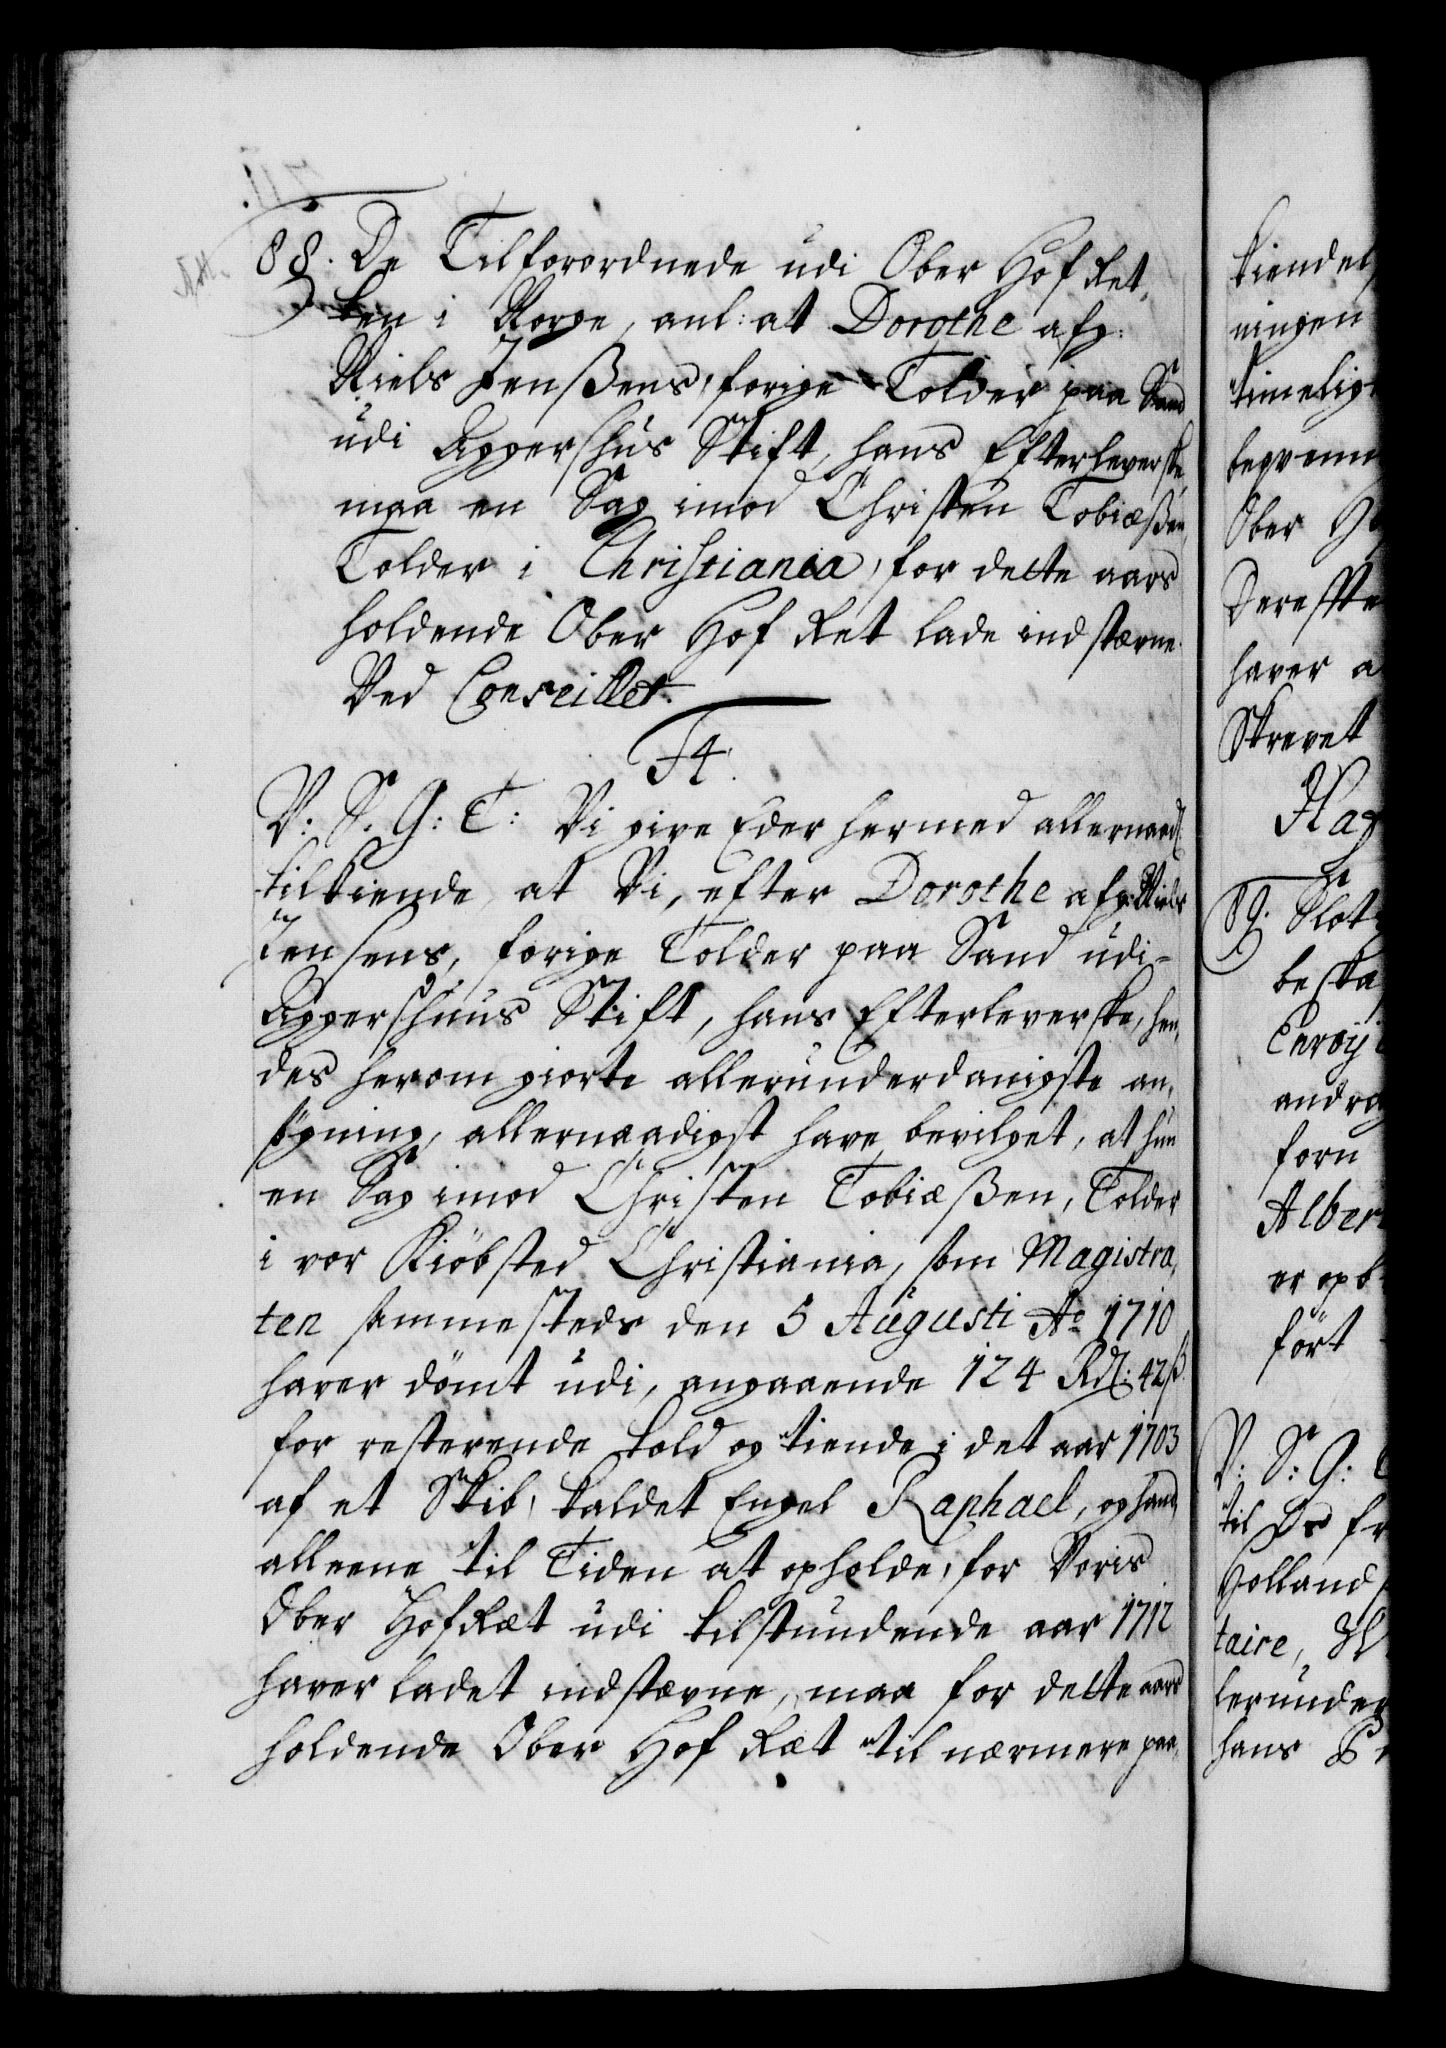 88. De Tilforordnede udi Ober Hof Ret,
ten i Norge, anl: at Dorothe afg:
Niels Jenßens, forige Tolder paa Sand
udi Aggershus Stift, hans Efterleverske,
maa en Sag imod Christen Tobiæßen,
Tolder i Christiania, for dette aars
holdende Ober Hof Ret lade indstævne.
Ved Conseillet.
F4.
V: S. G: T: Vi give Eder hermed allernaadl:
tilkiende, at Vi, efter Dorothe afg: Niels
Jensens, forige Tolder paa Sand udi
Aggershuus Stift, hans Efterleverske, hen,
des herom giorte allerunderdanigste an,
søgning, allernaadigst have bevilget, at hun
en Sag imod Christen Tobiæßen, Tolder
i vor Kiöbsted Christiania, som Magistra,
ten sammesteds den 5 Augusti Ao 1710
haver dömt udi, angaaende 124 Rdl: 42 ß
for resterende Told og tiende i det aar 1703
af et Skib, kaldet Engel Raphael, og hand,
alleene til Tiden at opholde, for Voris
Ober HofRæt udi tilstundende aar 1712
haver ladet indstævne, maa for dette aars
holdende Ober Hof Ræt til nærmere paa,
kiendel
ningen
timelig
beqvemm
Ober Ho
Dereffte
haver a
Skrevet
Hag
89. Slot
beska
Envoij
andrag
forn
Alber
er opb
fört
V: S: G:
til Os fr
Holland
taire,
lerunder
hans